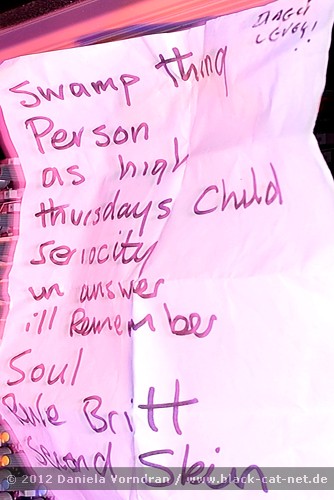 Swamp thing
Person
as high
thursdays child
seriocity
un answer
ill Remember
Soul
Rule Britt
Second Skin
© 2012 Daniela Vorndran / www.black-cat-net.de